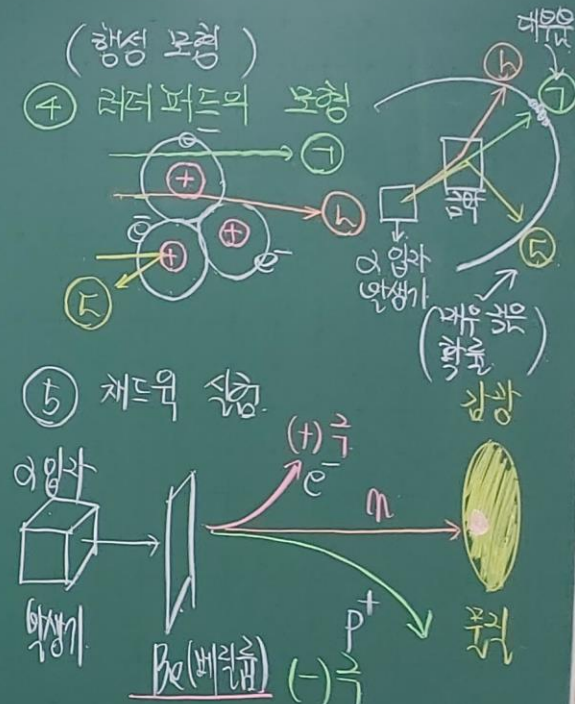 (행성 모형)
④ 러더퍼드의 모형
e⁻
+
ㄱ
+
ㄴ
e⁻
+
e⁻
ㄷ
대부분
ㄴ
ㄱ
금박
ㄷ
α입자
발생기
(매우 적은
확률)
⑤ 채드윅 실험
α입자
발생기
Be(베릴륨)
(+)극
e⁻
n
P⁺
(-)극
감광
물질